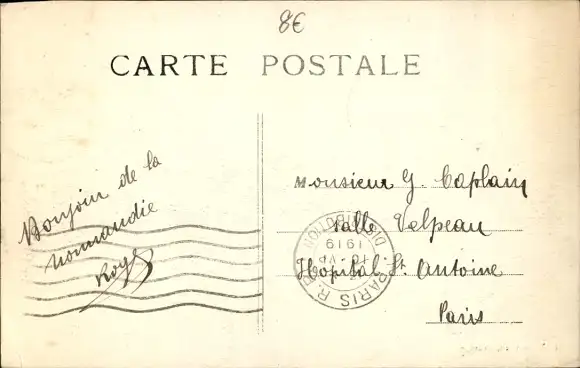 8€
CARTE POSTALE
Bonjour de la
Normandie
Monsieur G. Caplain
Salle Velpeau
Hôpital St. Antoine
Paris
PARIS R.P.
DISTRIBUTION
1919